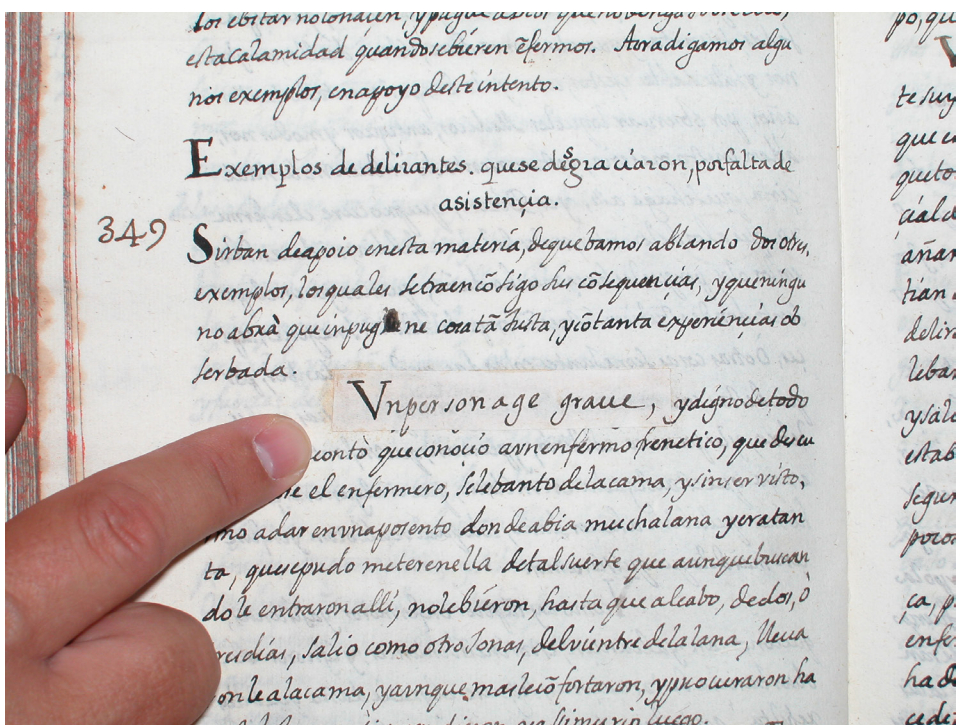 estacalamidad quandosebieren ēfermos. Aoradigamos algu
nos exemplos, enapoyo desteintento.
Exemplos de delirantes. quese desgraciaron, porfalta de
asistençia.
349
Sirban deapoio enesta materia, dequebamos ablando dos otres,
exemplos, losquales setraencōsigo sus cōsequencias, yqueningu
noabrà queinpug ne cosatā Justa, ycōtanta experiencias ob
serbada.
Vnpersonage graue, ydignodetodo
contò queconoció avnenfermo frenetico, que
el enfermero, selebanto delacama, ysinser visto,
adarenvnaposento dondeabia muchalana yeratan
ta, quesepudo meterenella detalsuerte que aunquebuscan
dole entraronalli, nolebieron, hasta que alcabo, dedos, ò
dias, salio como otro Jonas, delvientre delalana, lleua
lealacama, yaunque masleicōfortaron, yprocuraron ha
po, qu
te suy
que
queto
añar
tian
delira
lebar
ysale
estab
segun
poco
ca, p
enfer